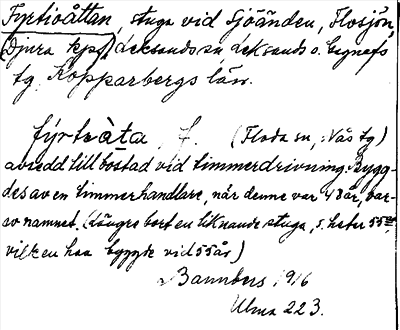 Fyrtioåttan, stuga vid Sjöänden, Flosjön,
(Djura kpf) Leksands sn, Leksands o. Gagnefs
tg, Kopparbergs län.
fýrtèåta, f. (Floda sn, Nås tg)
avsedd till bostad vid timmerdrivning. Bygg-
des av en timmerhandlare, när denne var 48 år, här-
av namnet. (Längre bort en liknande stuga, s. heter 55an,
vilken han byggde vid 55 år)
Bannbers 1916
Ulma 223.